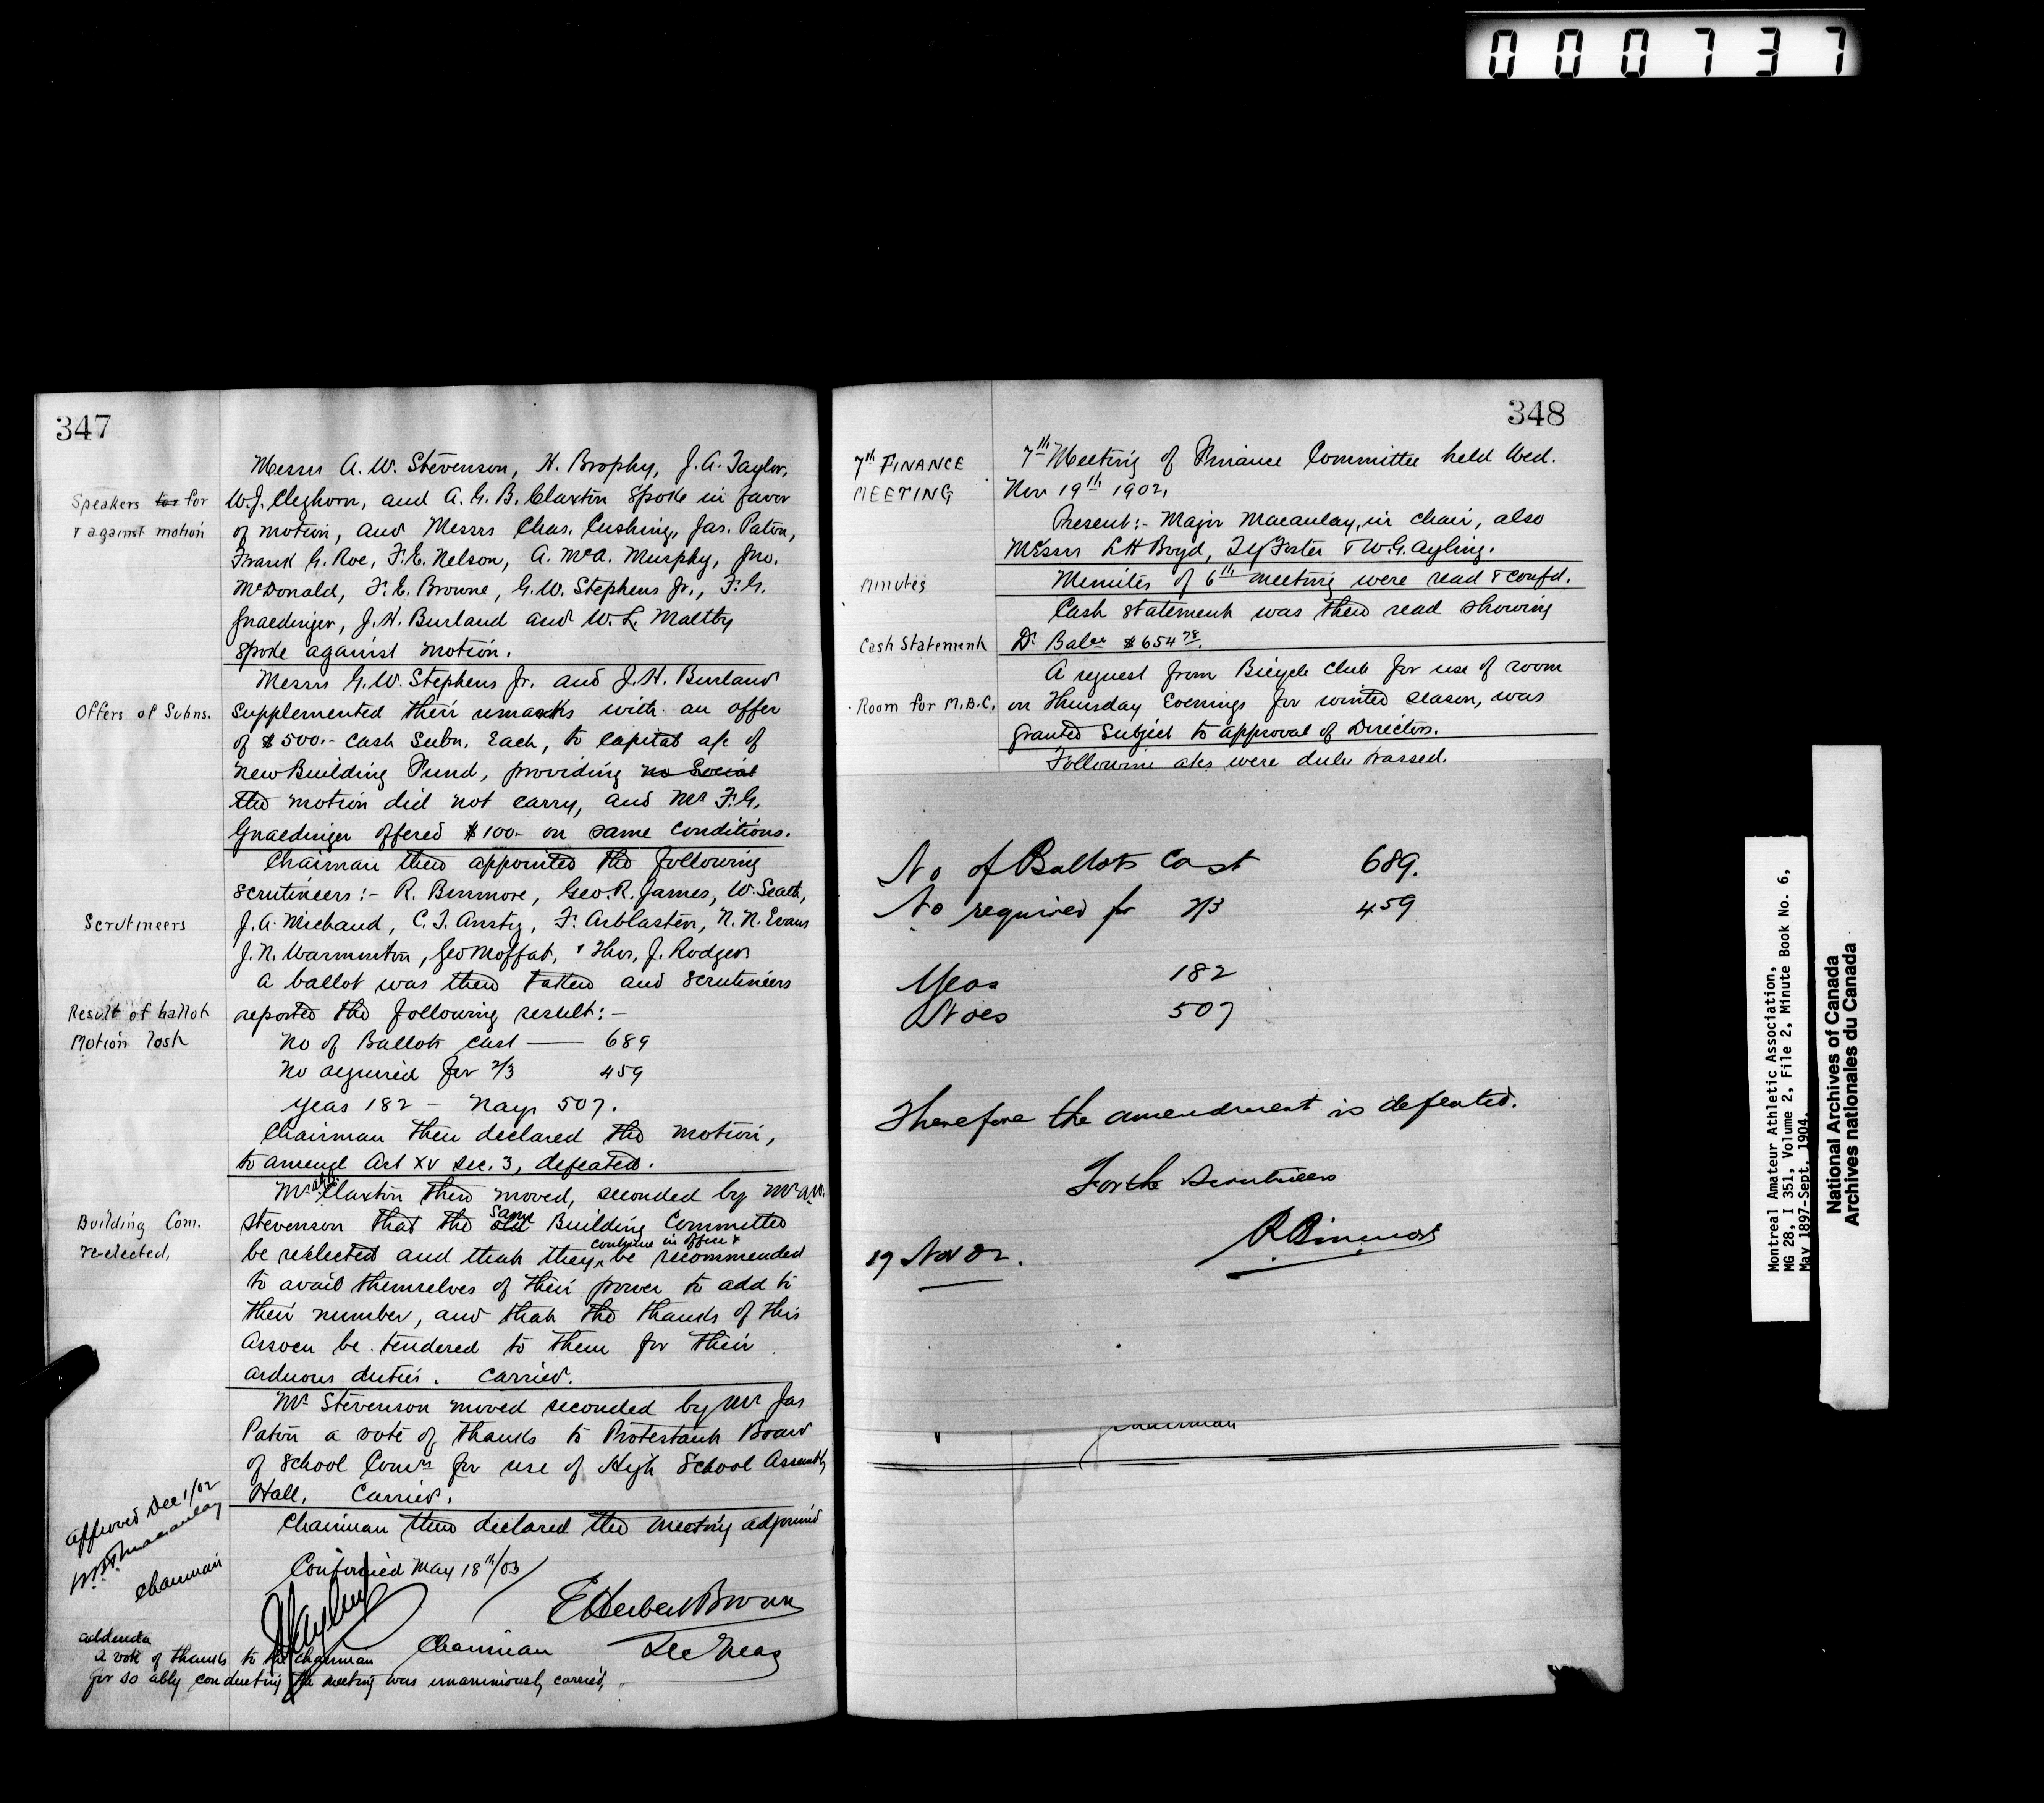 000737
347
Messrs A. W. Stevenson, H. Brophy, J. A. Taylor,
Speakers for for
W. J. Cleghorn, and A. G. B. Claxton spoke in favor
& against motion
of motion, and Messrs Chas. Cushing, Jas. Paton,
Frank G. Roe, F. E. Nelson, A. McA. Murphy, Jno.
McDonald, F. E. Browne, G. W. Stephens Jr., F. G.
Gnaedinger, J. H. Burland and W. L. Maltby
spoke against motion.
Messrs G. W. Stephens Jr. and J. H. Burland
Offers of Subns.
supplemented their remarks with an offer
of $500.- cash Subn. Each, to capital a/c of
New Building Fund, providing no Social
the motion did not carry, and Mr F. G.
Gnaedinger offered $100- on same conditions.
Chairman then appointed the following
scrutineers:- R. Binmore, Geo. R. James, W. Seath,
Scrutineers
J. A. Michaud, C. T. Ansty, F. Arblaster, N. N. Evans
J. N. Warminton, Geo Moffat, & Thos. J. Rodger
A ballot was then taken and scrutineers
Result of ballot
reported the following result:-
Motion lost
No of Ballots cast — 689
No required for 2/3 459
Yeas 182 - Nays 507.
Chairman then declared the motion,
to amend Art XV sec. 3, defeated.
Mr AGB Claxton then moved, seconded by Mr A.W.
Building Com.
Stevenson that the old same Building Committee
re-elected.
be reelected and that they continue in office & be recommended
to avail themselves of their power to add to
their number, and that the thanks of this
Assocn be tendered to them for their
arduous duties. Carried.
Mr Stevenson moved seconded by Mr Jas
Paton a vote of thanks to Protestant Board
of School Comrs for use of High School Assembly
Hall. Carried.
Chairman then declared the meeting adjourned
Approved Dec 1/02
Macaulay
Chairman
Confirmed May 18th/03
E Herbert Brown
Chairman
Sec Treas
addenda
A vote of thanks to the chairman
for so ably conducting the meeting was unanimously carried.
348
7th FINANCE
MEETING
7th Meeting of Finance Committee held Wed.
Nov 19th 1902.
Present:- Major Macaulay, in chair, also
Messrs L H Boyd, Foster & W. G. Ayling.
Minutes
Minutes of 6th meeting were read & confd.
Cash statement was then read showing
Cash Statement
Dr Balce $654 78.
A request from Bicycle Club for use of room
Room for M.B.C.
on Thursday Evenings for winter season, was
granted subject to approval of Directors.
Following a/cs were duly passed.
No of Ballots Cast 689.
No required for 2/3 459
Yeas 182
Noes 507
Therefore the amendment is defeated.
For the Scrutineers
R Binmore
19 Nov 02.
Chairman
Montreal Amateur Athletic Association,
MG 28, I 351, Volume 2, File 2, Minute Book No. 6,
May 1897-Sept. 1904.
National Archives of Canada
Archives nationales du Canada